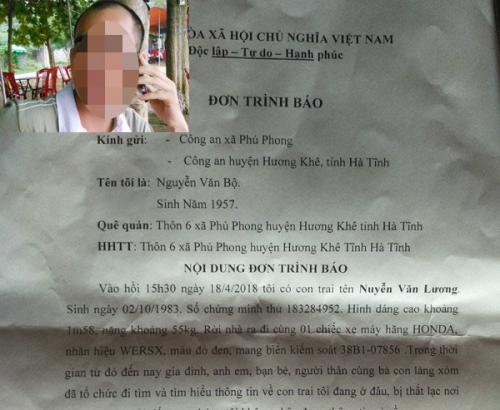 ÒA XÃ HỘI CHỦ NGHĨA VIỆT NAM
Độc lập – Tự do – Hạnh phúc
ĐƠN TRÌNH BÁO
Kính gửi: - Công an xã Phú Phong
- Công an huyện Hương Khê, tỉnh Hà Tĩnh
Tên tôi là: Nguyễn Văn Bộ.
Sinh Năm 1957.
Quê quán: Thôn 6 xã Phú Phong huyện Hương Khê tỉnh Hà Tĩnh
HHTT: Thôn 6 xã Phú Phong huyện Hương Khê Tỉnh Hà Tĩnh
NỘI DUNG ĐƠN TRÌNH BÁO
Vào hồi 15h30 ngày 18/4/2018 tôi có con trai tên Nuyễn Văn Lương.
Sinh ngày 02/10/1983. Số chứng minh thu 183284952. Hình dáng cao khoảng
1m58, nặng khoảng 55kg. Rời nhà ra đi cùng 01 chiếc xe máy hãng HONDA,
nhãn hiệu WERSX, màu đỏ đen, mang biển kiểm soát 38B1-07856 .Trong thời
gian từ đó đến nay gia đình, anh em, bạn bè, người thân cùng bà con làng xóm
đã tổ chức đi tìm và tìm hiểu thông tin về con trai tôi đang ở đâu, bị thất lạc nơi